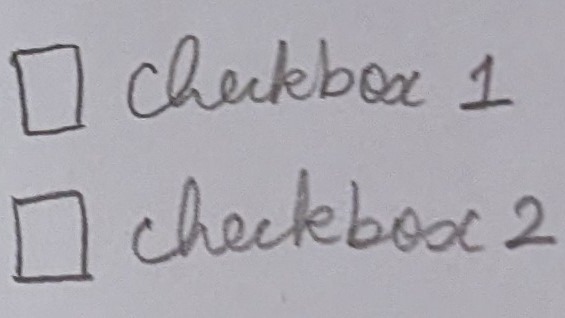 ☐ Checkbox 1
☐ checkbox 2